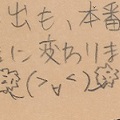 出も、本番
に変わりま
(>∀<)